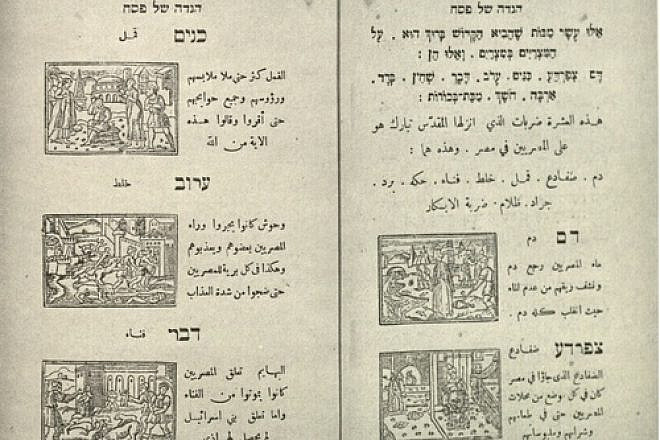 הגדה של פסח
אלו עשר מכות שהביא הקדוש ברוך הוא . על
המצריים במצרים . ואלו הן :
דם צפרדע . כנים . ערוב . דבר . שחין . ברד .
ארבה . חשך . מכת־בכורות :
هذه العشرة ضربات الذي انزلها المقدّس تبارك هو
على المصريين في مصر . وهذه هما :
دم . ضفادع . قمل . خلط . فناء . حكه . برد .
جراد . ظلام . ضربة الابكار
דם دم
ماء المصريين رجع دم
ونشف ريقهم من عدم الماء
حيث انقلب كله دم .
צפרדע ضفادع
الضفادع الذي جازا في مصر
كان في كل موضع من محلات
المصريين حتى في طعامهم
وشرابهم وملبوساتهم
הגדה של פסח
כנים قمل
القمل كثر حتى ملا ملابسهم
ورؤوسهم وجميع حوايجهم
حتى أقروا وقالوا هذه
الاية من الله
ערוב خلط
وحوش كانوا يجروا وراء
المصريين يعضوهم ويعذبوهم
وهكذا في كل برية للمصريين
حتى ضجوا من شدة العذاب
דבר فناء
البهايم تعلق المصريين
كانوا يموتوا من الفناء
واما تعلق بني اسرائيل
لم يحصل لهم اذى